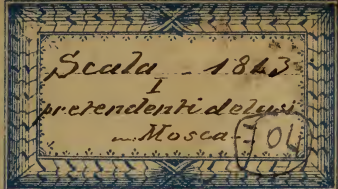 Scala - 1823
I
pretendenti delusi
Mosca -